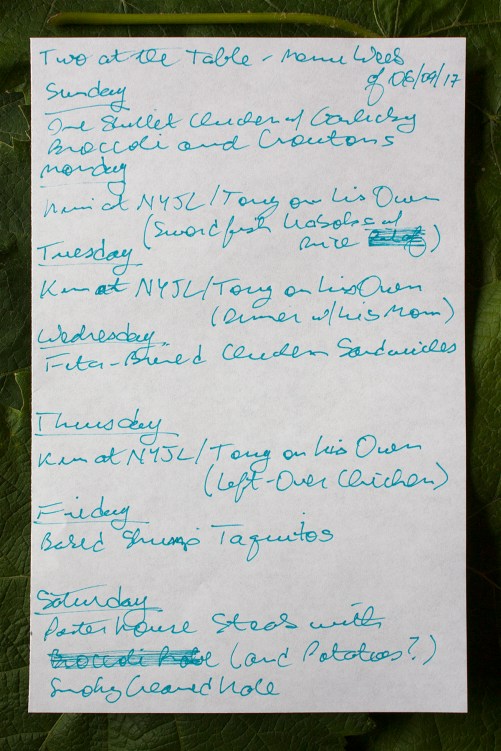 Two at the Table - Menu Week
of 06/09/17
Sunday
One Skillet Chicken w/ Garlicky
Broccoli and Croutons
Monday
Kim at NYJL/Tony on his Own
(Swordfish Kabobs w/
rice)
Tuesday
Kim at NYJL/Tony on his Own
(Dinner w/his Mom)
Wednesday
Feta-Brined Chicken Sandwiches
Thursday
Kim at NYJL/Tony on his Own
(Left-Over Chicken)
Friday
Baked Shrimp Taquitos
Saturday
Porterhouse Steak with
(and Potatoes?)
Smoky Creamed Kale